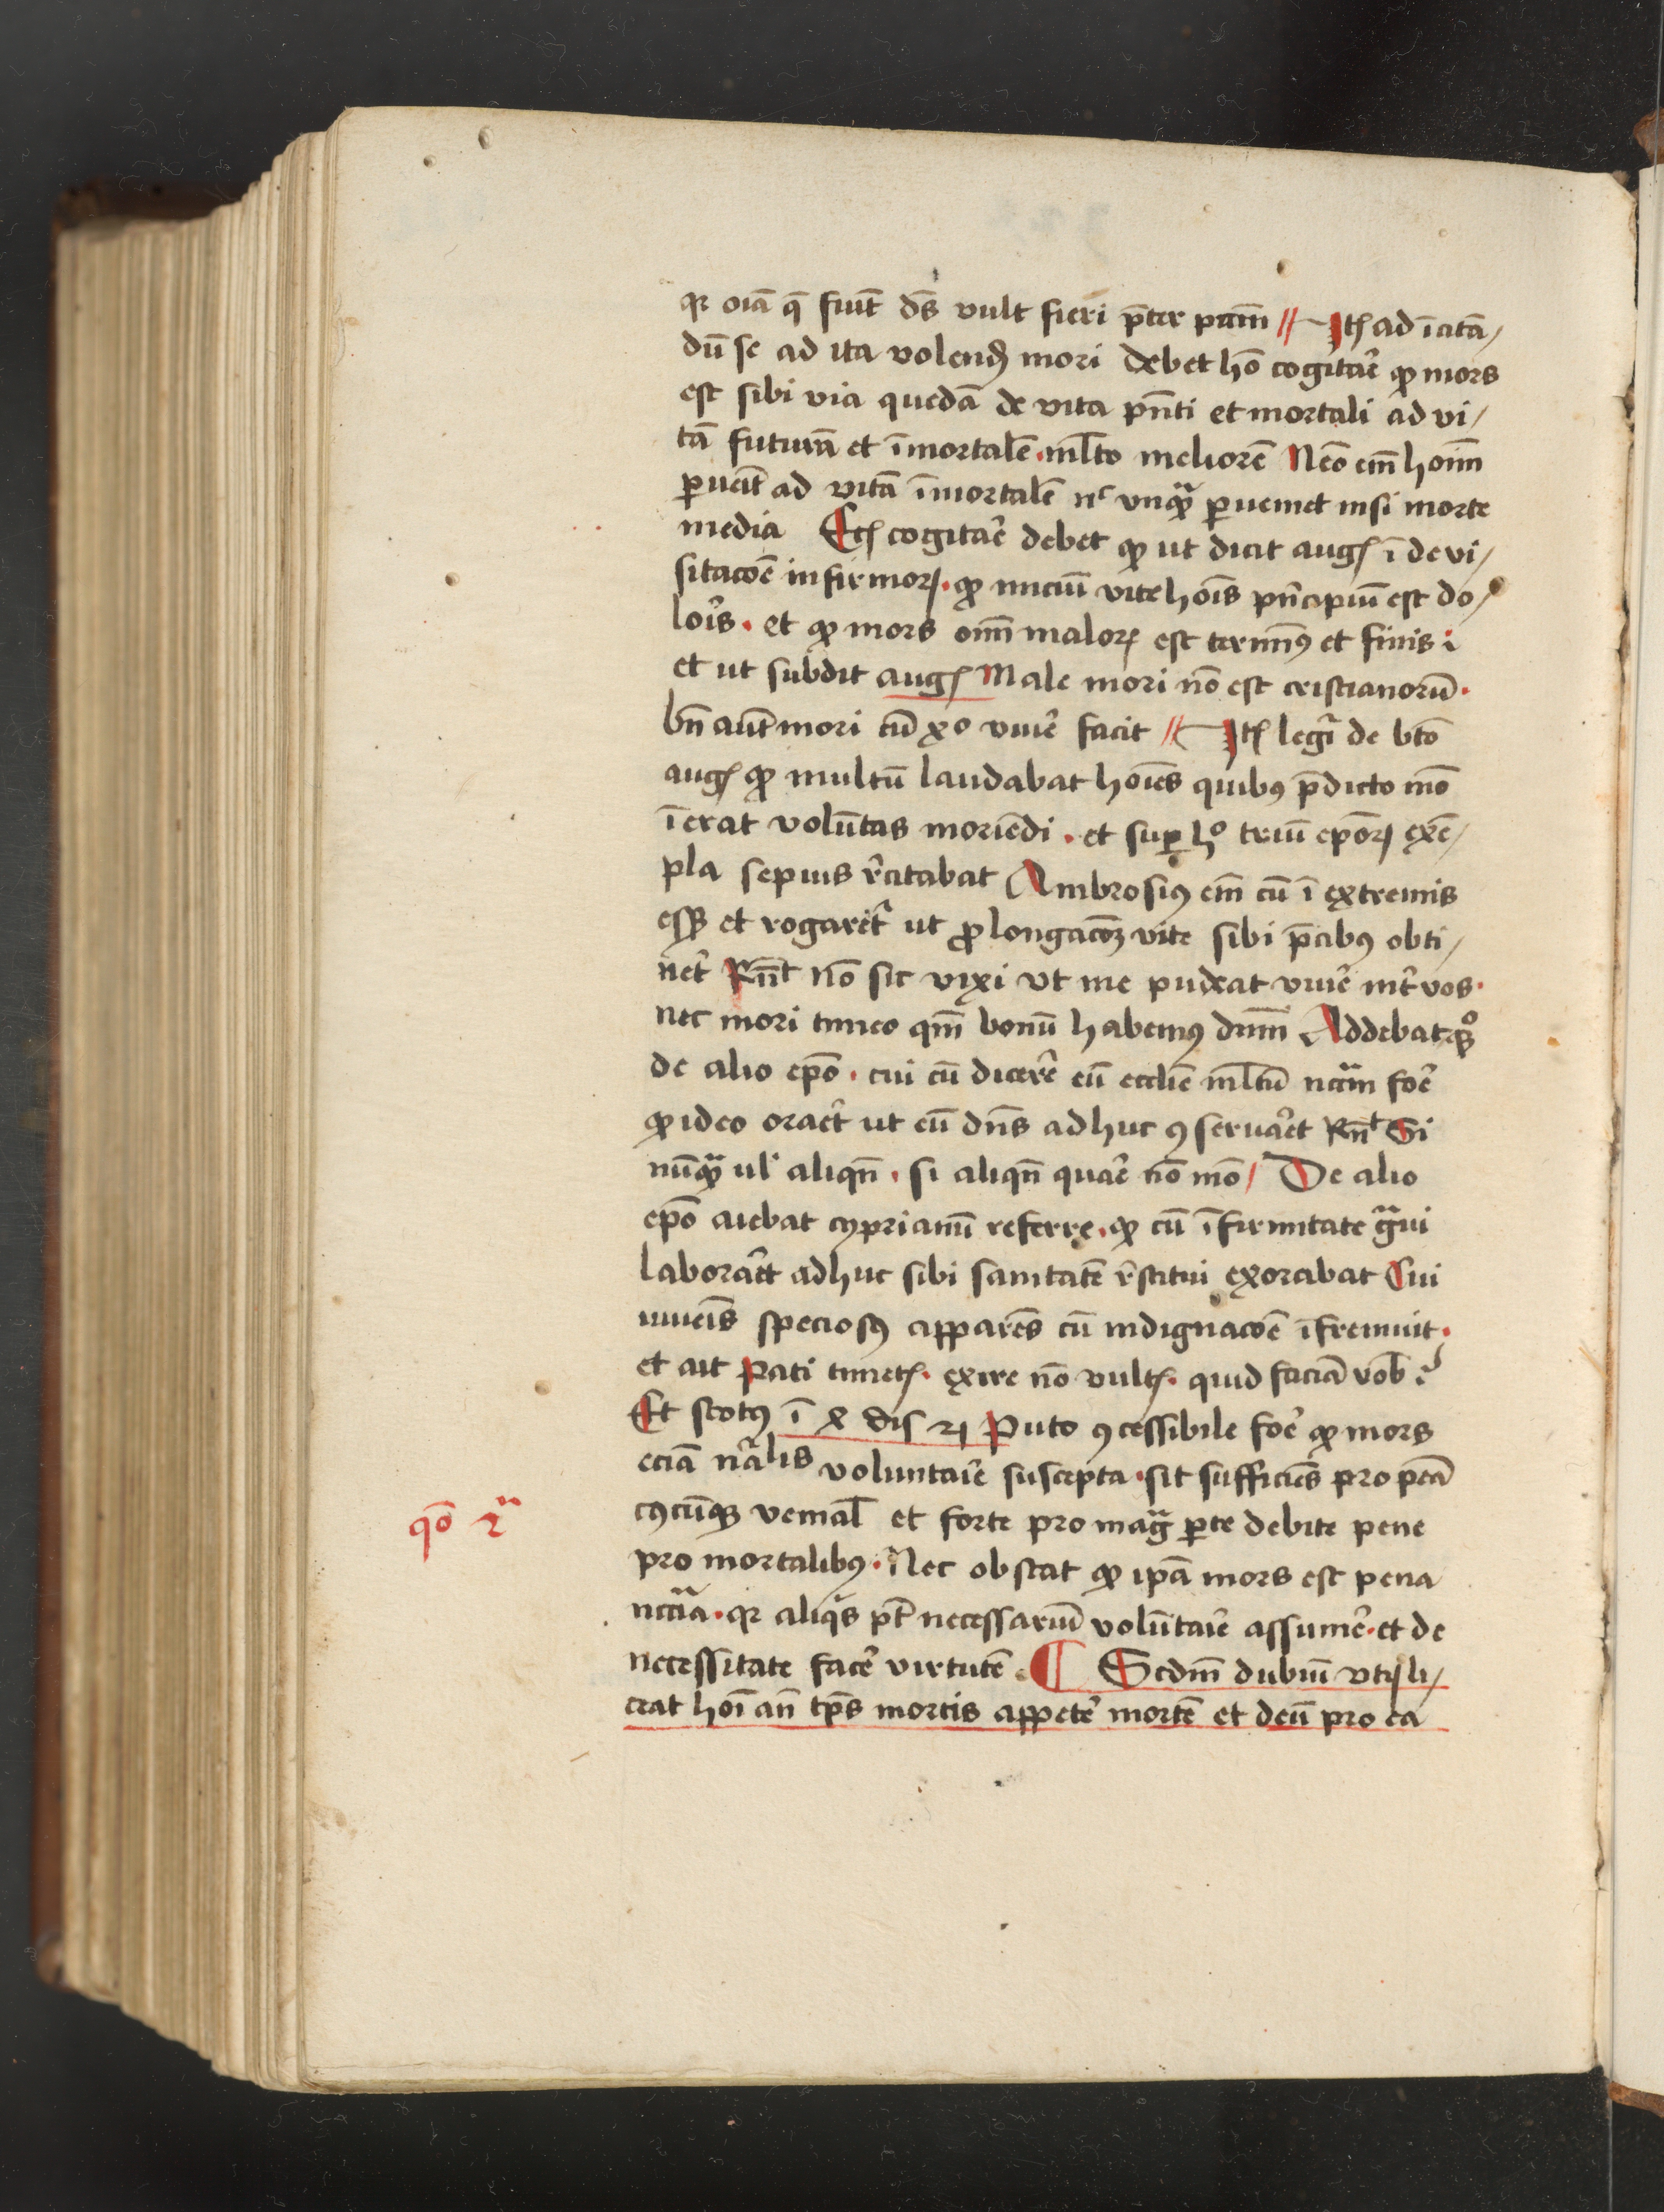 qꝛ oīa q̄ fiūt dꝰ vult fieri p̄ter pctm̄ // Itē ad īcitā/
dū se ad ita volend̄ mori debet hō cogitar̄e ꝙ mors
est sibi via quedā de vita pn̄ti et mortali ad vi/
tā futurā et īmortalē · ml̄to meliorē Nēo em̄ hoīm
ꝑuēit ad vitā īmortalē nᶜ vnqᷓ ꝑueniet nisi morte
media Itē cogitar̄e debet ꝙ ut dicit augꝰ ī de vi/
sitacōe infirmoꝝ · ꝙ iniciū vite hoīs pn̄cipiū est do/
lor̄is · et ꝙ mors om̄ maloꝝ est termīꝰ et finis :
et ut subdit augꝰ Male mori nō est cristianorū ·
bn̄ aūt mori cū xº viuer̄e facit // Itē legit̄ de btō
augꝰ ꝙ multū laudabat hoīes quibꝰ p̄dicto mō
īerat volūtas moriēdi · et suꝑ hº triū epōꝝ exē/
pla sepius r̄citabat Ambrosiꝰ em̄ cū ī extremis
eēꝫ et rogaret᷑ ut ꝓlongacōꝫ vite sibi p̄cibꝰ obti/
ner̄t Rn̄t Nō sic vixi vt me pudeat viuer̄e int̄ vos ·
nec mori timeo qm̄ bonū habemꝰ dnm̄ Addebat qꝫ
de alio epō · cui cū dicer̄t eū ecclīe ml̄tū ncc̄m foēr
ꝙ ideo orar̄et ut eū dn̄s adhuc ꝯseruar̄et Rn̄t Si
nūqᷓ ul̄ aliqn̄ · si aliqn̄ quar̄e nō mō / De alio
epō aiebat cyprianū referre · ꝙ cū īfirmitate gᷓui
laborar̄et adhuc sibi sanitatē r̄stitui exorabat Cui
iuueīs speciosꝰ apparēs cū indignacōe īfremuit ·
et ait Pati timetꝭ · exire nō vultꝭ · quid faciā vob̄ ?
Et scotꝰ ī 4 dis 21 Puto ꝯcessibile foēr ꝙ mors
eciā nᷓalis voluntar̄ie suscepta · sit sufficiēs pro pctā
cꝰcūqꝫ venial̄ et forte pro magᷓ ꝑte debite pene
pro mortalibꝰ · Nec obstat ꝙ ipā mors est pena
nccᷓia · qꝛ aliqͥs pt̄ necessariū volūtar̄ie assumer̄e · et de
necessitate facer̄e virtutē · ¶ Scd̄m dubiū vtꝝ li/
ceat hoī an̄ tps̄ mortis appeter̄e mortē et deū pro ea
qō 2ᵃ